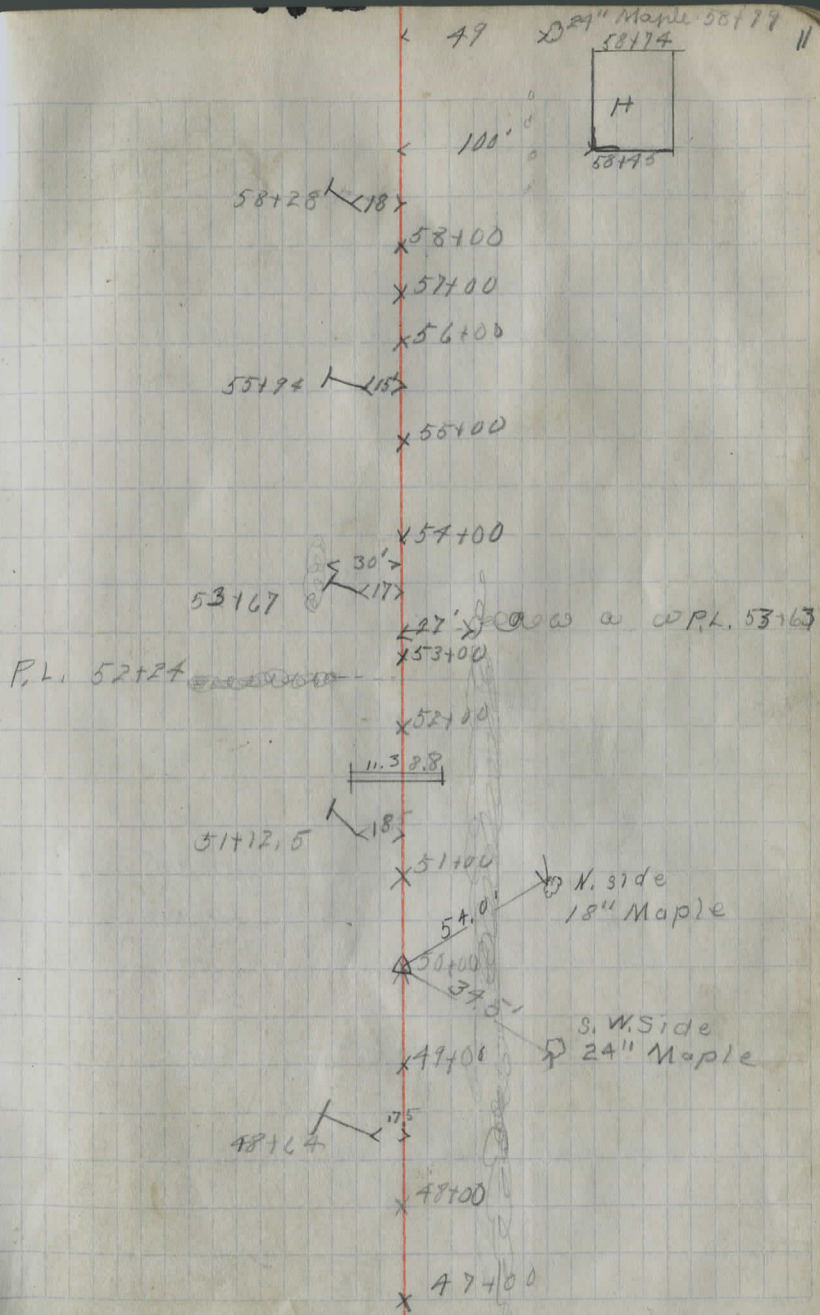 49 24" Maple 58+79 11
58+74
H
100'
58+45
58+28 18
58+00
57+00
56+00
55+94 15'
55+00
54+00
30'
53+67 17
27' P.L. 53+63
53+00
P.L. 52+24
52+00
11.3 8.8
51+12.5 18.5
51+00
N. side
54.0' 18" Maple
50+00
34.5'
S. W. Side
49+00 24" Maple
17.5
48+64
48+00
47+00